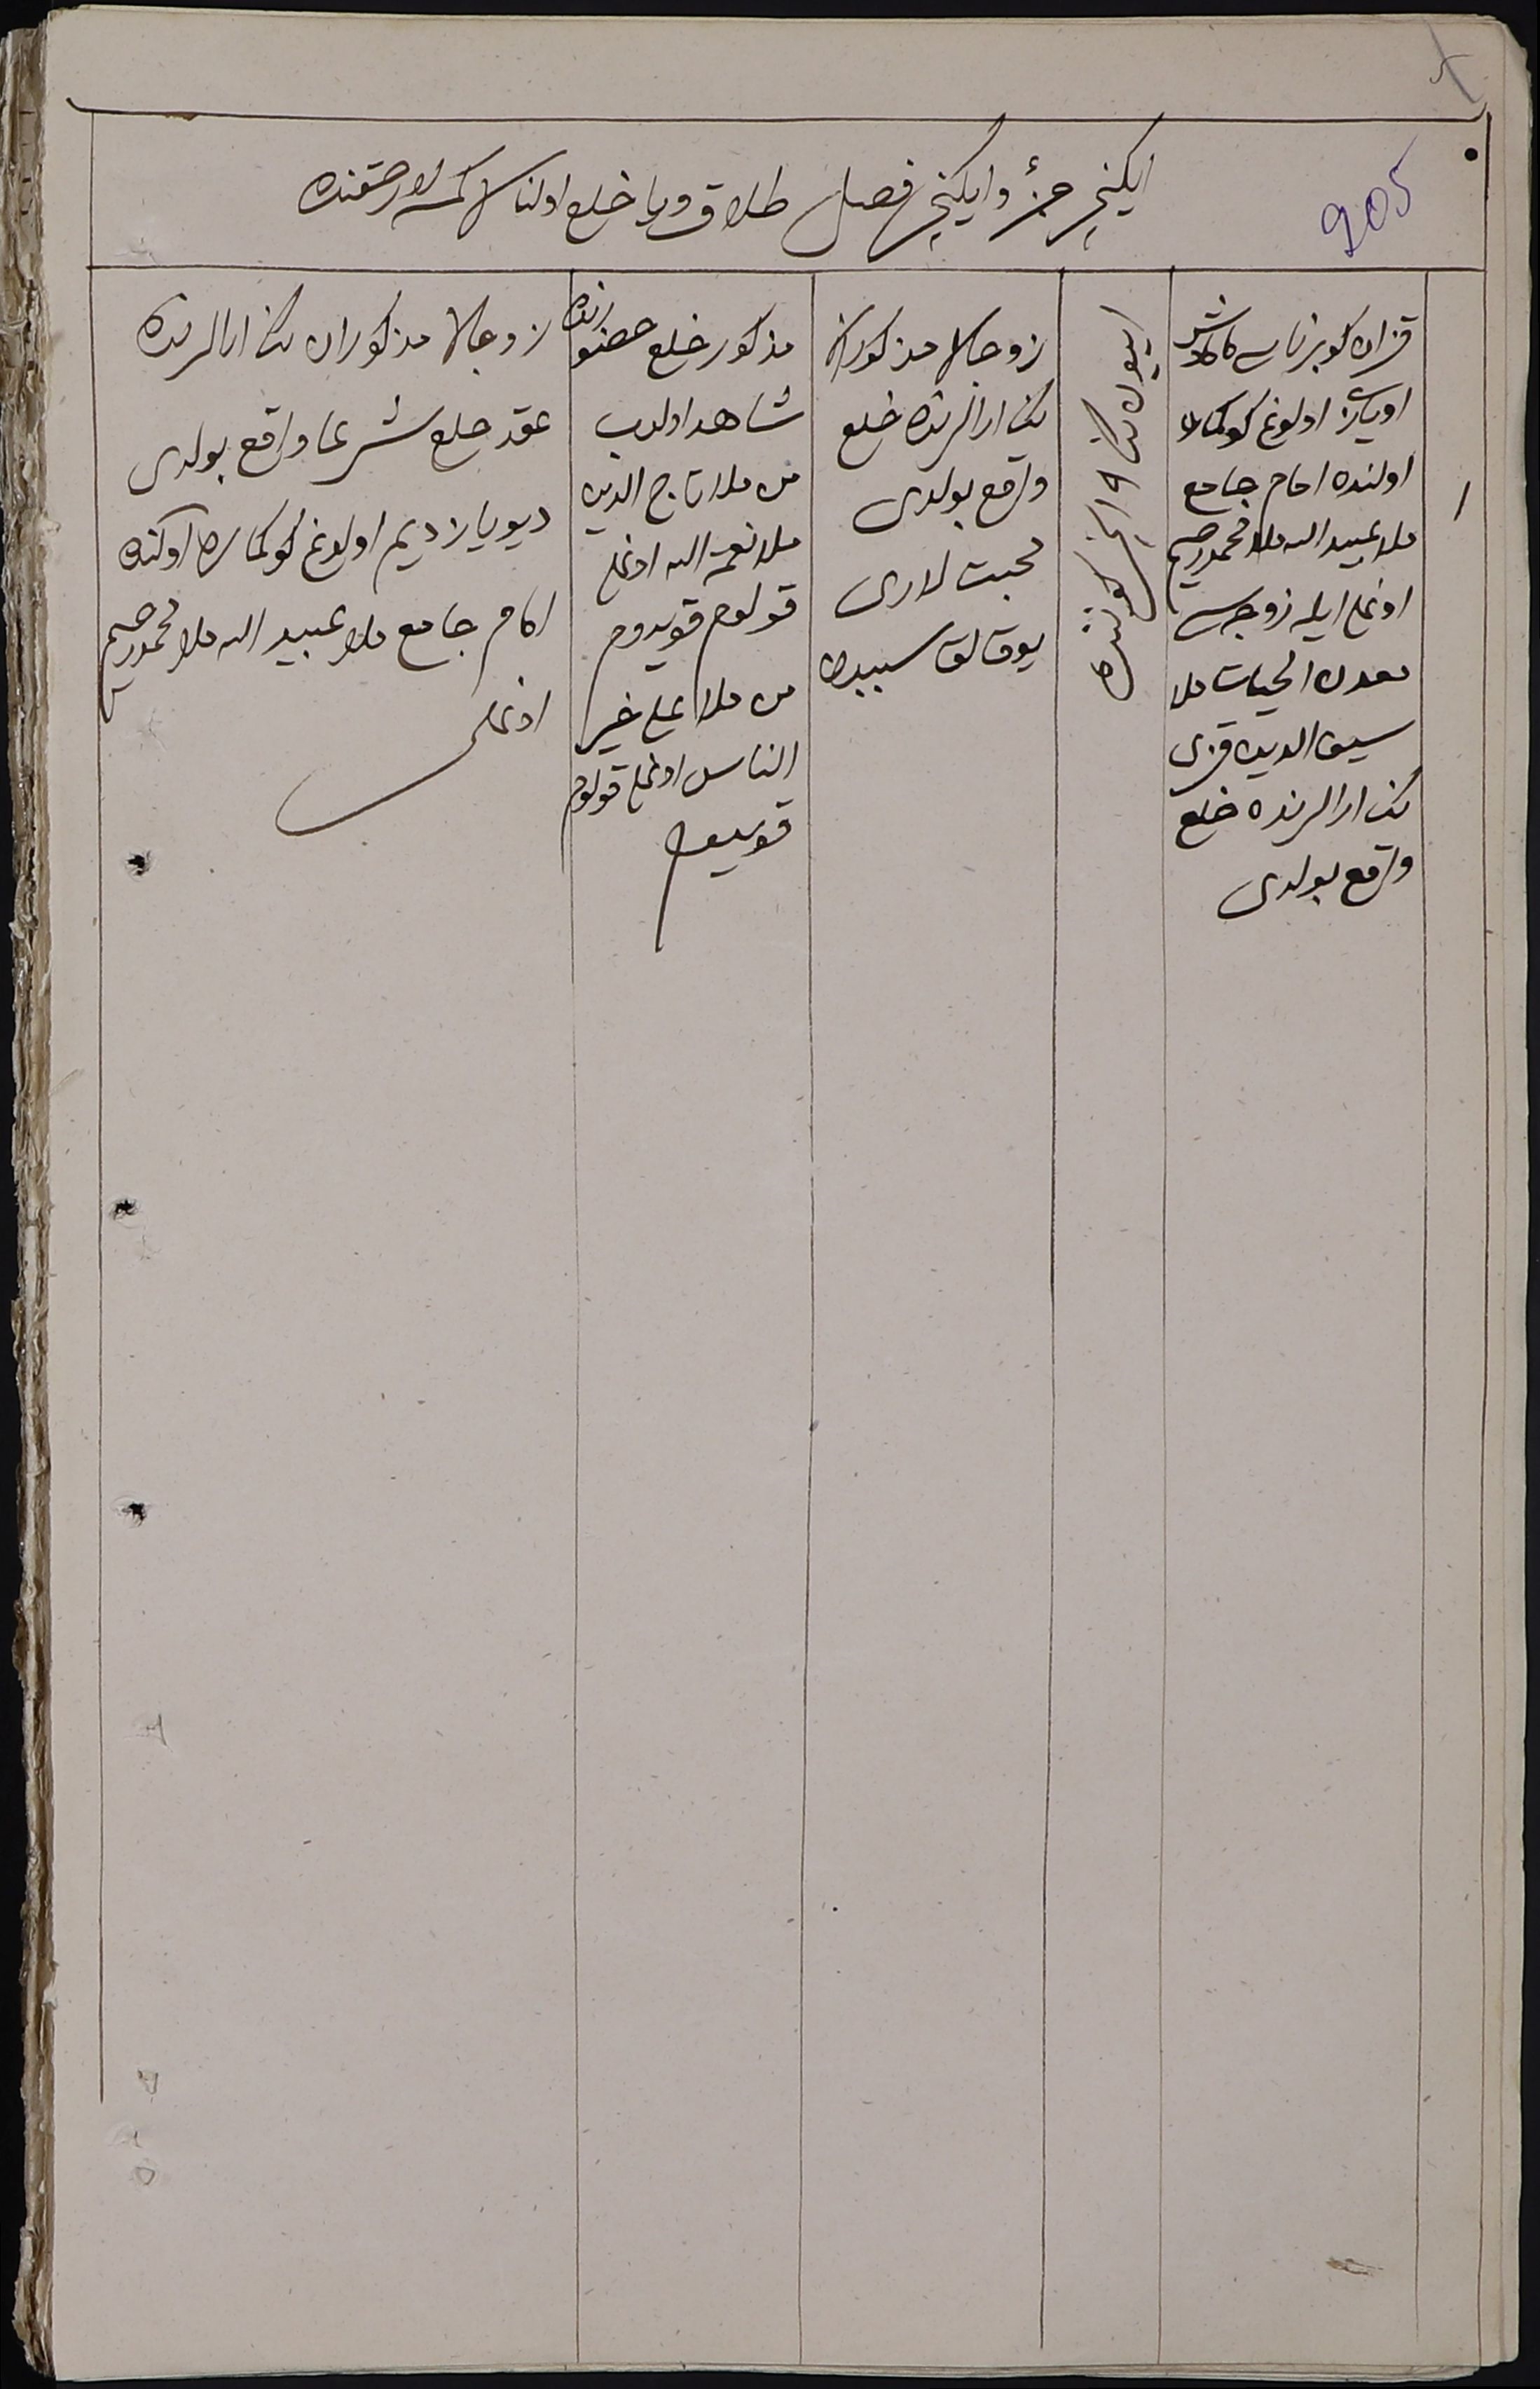 205
ایکنجی جزؤ وایکنجی فصل طلاق ویا خلع اولنا کمسه لار حقنده
۱
قزان کوبرناسی
اویازی اولوغ کوکای
اولنده امام جامع
ملا عبید الله ملا محمدرحیم
اوغلی ایله زوجه سی
معدن الحیات ملا
سیف الدین قزی
نک ارالرنده خلع
واقع بولدی
اییول نک ۱۹ نجی کوننده
زوجان مذکوران
نک ارالرنده خلع
واقع بولدی
محبت لاری
یوقالق سببیدن
مذکور خلع حضورنده
شاهد اولوب
من ملا تاج الدین
ملا نعمة الله اوغلی
قولوم قویدوم
من ملا علی خیر
الناس اوغلی قولوم
قویدوم
زوجان مذکوران نک ارالرنده
عقد خلع شرعا واقع بولدی
دیو یازدیم اولوغ کوکای اولنده
امام جامع ملا عبید الله ملا محمدرحیم
اوغلی